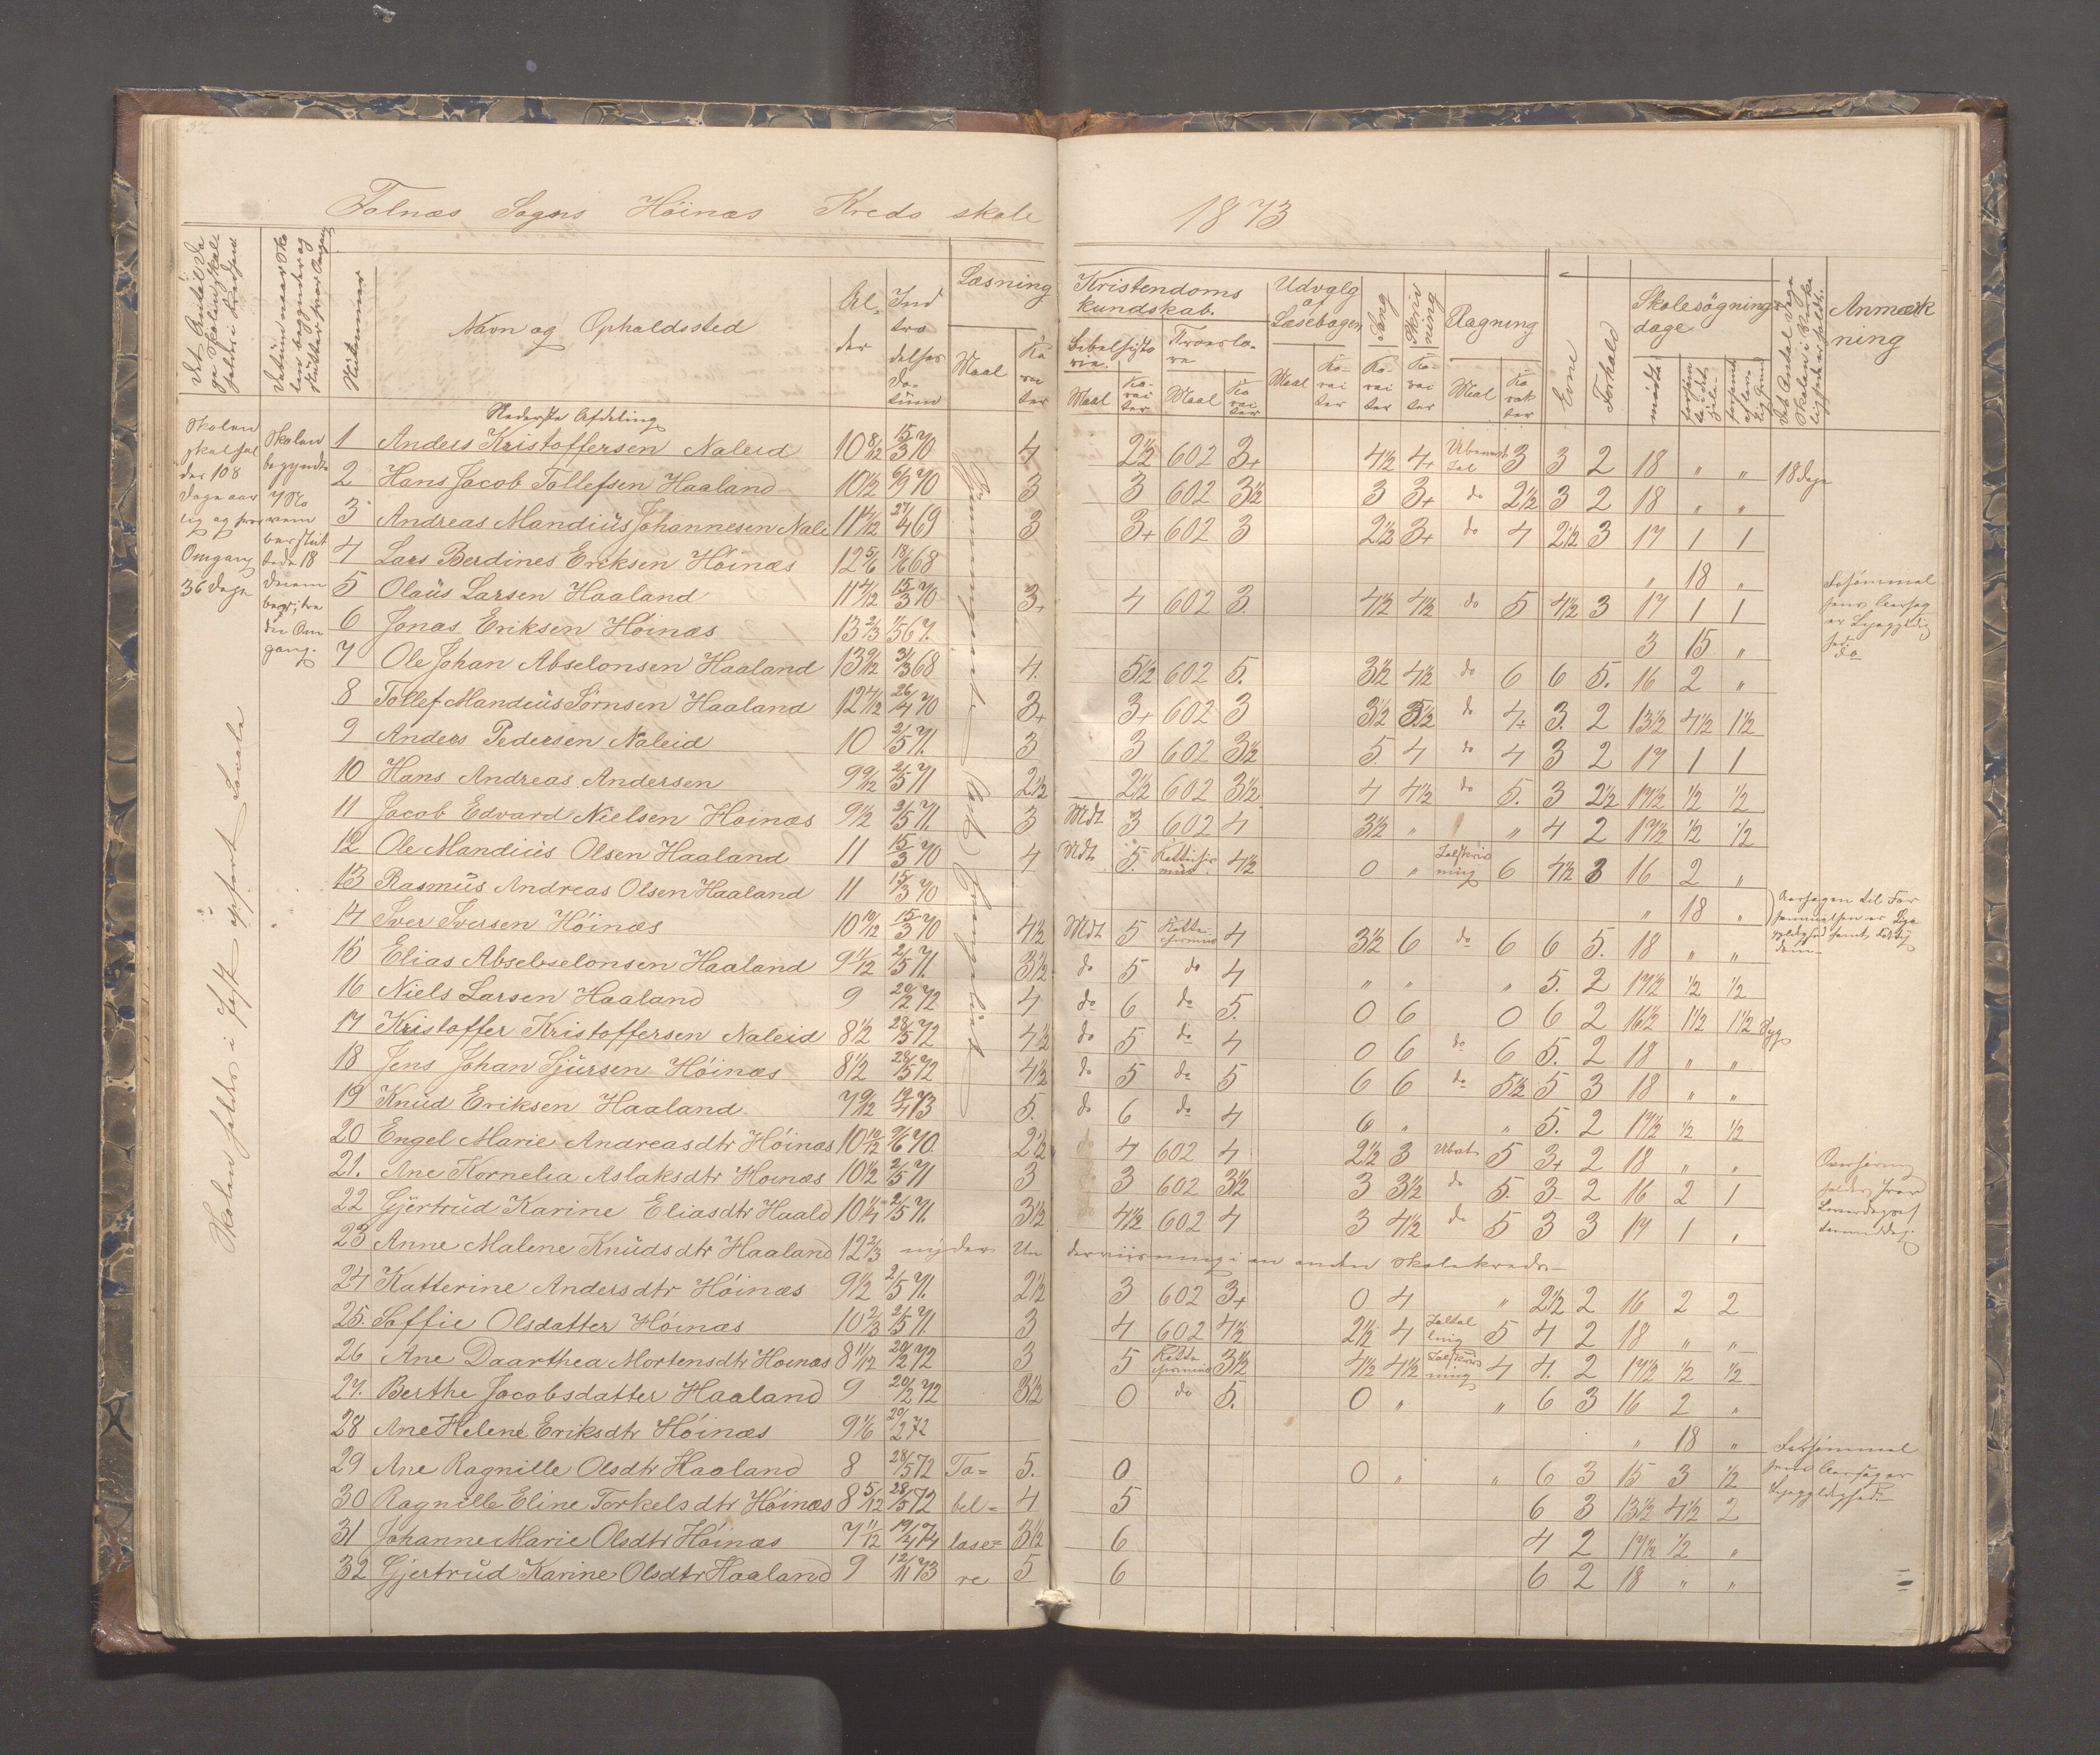 Falnæs Sogns Høinæs Kreds skole 1873
Læsning Kristendoms kundskab. Udvalg af Læsebogen Sang Skriv ning Regning Evne Forhold Skolesøgnings dage Anmærk ning
Navn og Opholdssted Al der Ind træ delses da tüm Maal Ka rac ter
Bibelhisto rie Troeslæ re
Maal Ka rac ter Maal Ka rac ter Maal Ka rac ter Ka rac ter Ka rac ter Maal Ka rak ter mødte
Nederste Afdeling
Skolen skal hol des 108 Dage aar lig og hver Omgang 36 Dage
Skolen begyndte
Skolen holdes i fast opført Locale
1 Anders Kristoffersen Naleid 10 8/12 15/3 70 4 2½ 602 3+ 4½ 4+ Ubenævnt Tal 3 3 2 18 „ „ 18 Dage
2 Hans Jacob Tollefsen Haaland 10½ 6/9 70 3 3 602 3½ 3 3+ do 2½ 3 2 18 „ „
3 Andreas Mandius Johannesen Nalei 11 4/12 27/4 69 3 3+ 602 3 2½ 3+ do 4 2½ 3 17 1 1
4 Lars Berdines Eriksen Høinæs 12 5/6 18/6 68 „ 18 „
5 Olaüs Larsen Haaland 11 4/12 15/3 70 3+ 4 602 3. 4½ 4½ do 5 4½ 3 17 1 1
6 Jonas Eriksen Høinæs 13 2/3 1/5 67. 3 15 „ do
7 Ole Johan Abselonsen Haaland 13 9/12 3/3 68 4. 5½ 602 5. 3½ 4½ do 6 6 5. 16 2 „
8 Tollef Mandeus Sørnsen Haaland 12 4/12 26/4 70 3+ 3+ 602 3 3½ 3½ do 4+ 3. 2 13½ 4½ 1½
9 Anders Pedersen Naleid 10 2/5 71. 3 3 602 3½ 5. 4 do 4 3 2 17 1 1
10 Hans Andreas Andersen 9 9/12 2/5 71 2½ 2½ 602 3½ 4 4½ do 5. 3 2½ 17½ ½ ½
11 Jacob Edvard Nielsen Høinæs 9½ 2/5 71. 3 Mdt 3 602 4 3½ „ „ 4 2 17½ ½ ½
12 Ole Mandius Olsen Haaland 11 15/3 70 4 Mdt 5. 4½ 0 „ Talskriv ning 6 4½ 3 16 2 „
13 Rasmus Andreas Olsen Haaland 11 15/3 70 „ 18 „
14 Sver Sversen Høinæs 10 10/12 15/3 70 4½ Mdt 5 4 3½ 6 do 6 6 5. 18 „ „
15 Elias Abselselonsen Haaland 9 11/12 2/5 71. 3½ do 5 do 4 „ „ „ 5. 2 17½ ½ ½
16 Niels Larsen Haaland 9 20/2 72 4 do 6 do 5. 0 6 0 6 2 16½ 1½ 1½ Syg
17 Kristoffer Kristoffersen Naleid 8½ 28/5 72 4½ do 5 do 4 0 6 do 6 5. 2 18 „ „
18 Jens Johan Sjursen Høinæs 8½ 28/5 72 4½ do 5 do 5 6 6 do 5½ 5 3 18 „ „
19 Knud Eriksen Haaland 7 9/12 19/4 73 5. do 6 do 4 6 „ „ 5. 2 17½ ½ ½
20 Engel Marie Andreasdtr Høinæs 10 10/12 9/6 70. 2½ do 4 602 4 2½ 3 5 3+ 2 18 „ „
21. Ane Kornelia Aslaksdtr Høinæs 10½ 2/5 71 3 3 602 3½ 3 3½ do 5. 3 2 16 2 1
22 Gjertrud Karine Eliasdtr Haald 10¼ 2/5 71. 3½ 4½ 602 4 3 4½ do 5 3 3 17 1 „
23 Anne Malene Knudsdtr Haaland 12 2/3 nyder Un derviisning i en anden skolekreds
24 Katterine Andersdtr Høinæs 9½ 2/5 71. 2½ 3 602 3+ 0 4 „ 2½ 2 16 2 2
25. Soffie Olsdatter Høinæs 10 2/3 2/5 71. 3 4 602 4½ 2½ 4 5 4 2 18 „ „
26 Ane Daarthea Mortensdtr Høinæs 8 11/12 20/2 72 3 5 3½ 4½ 4½ Talskriv ning 4 4. 2 17½ ½ ½
27. Berthe Jacobsdatter Haaland 9 20/2 72 3½ 0 do 5. 0 „ „ 6 3 16 2 „
28 Ane Helene Eriksdtr Høinæs 9 1/6 20/2 72 „ 18 „
29 Ane Ragnille Olsdtr Haaland 8 28/5 72 Ta= 5. 0 0 „ „ 6 3 15 3 ½
30 Ragnille Eline Torkelsdtr Høinæs 8 5/12 28/5 72 bel= 4 5 6 3 13½ 4½ 2
31 Johanne Marie Olsdtr Høinæs 7 11/12 19/4 74 læse= 3½ 6 4 2 17½ ½ „
32 Gjertrud Karine Olsdtr Haaland 9 12/11 73 re 5 6 6 2 18 „ „